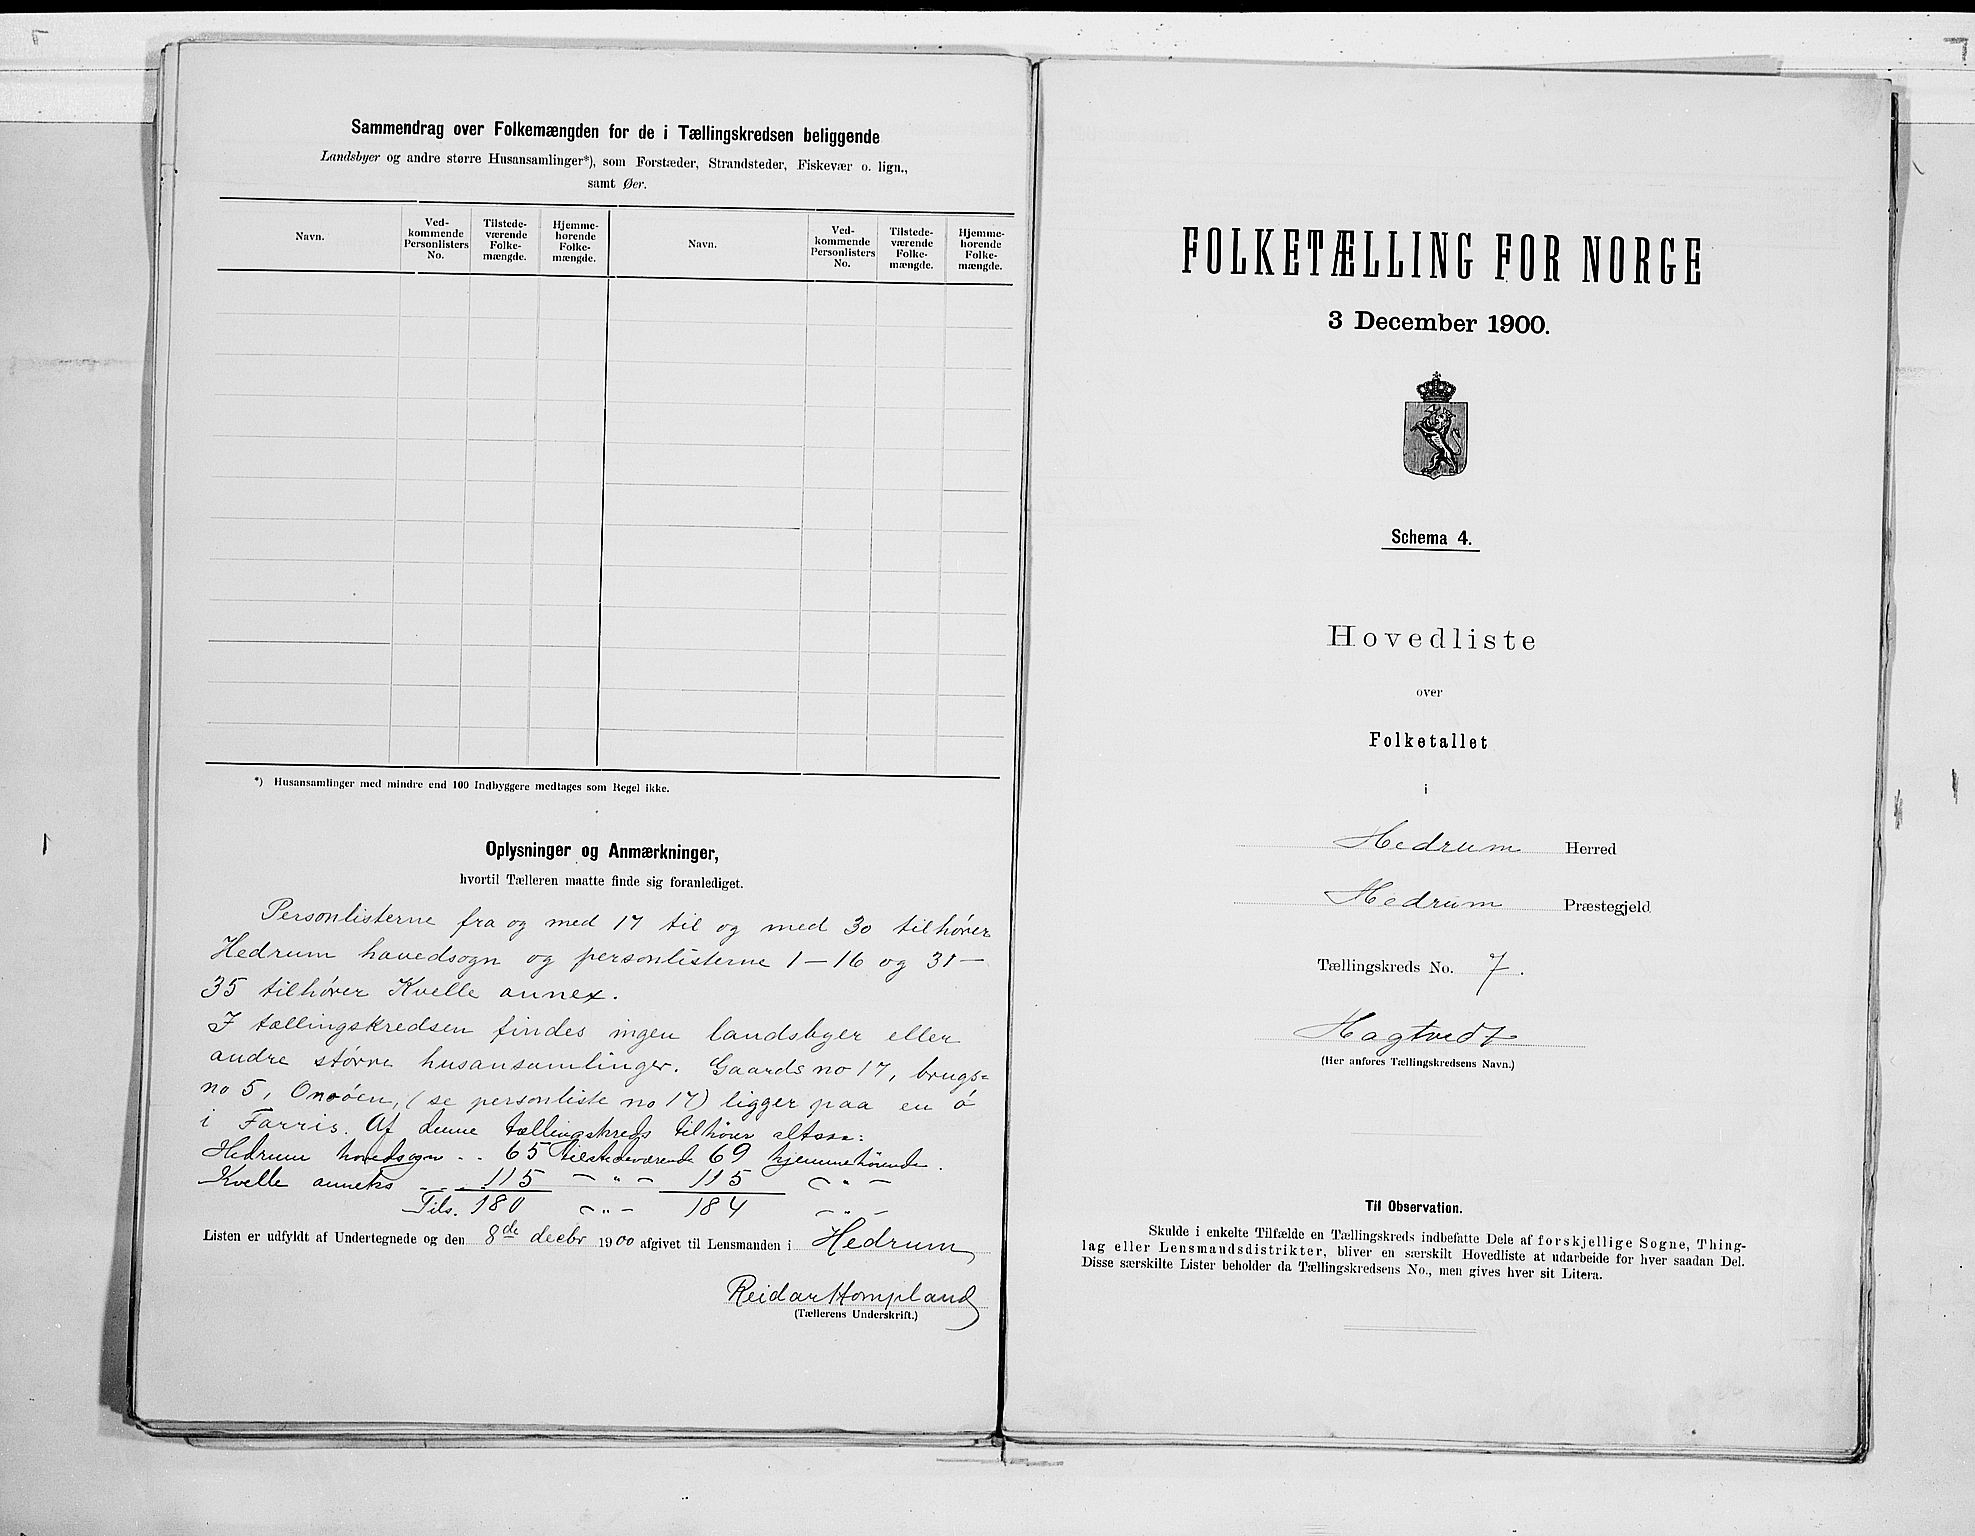 Sammendrag over Folkemængden for de i Tællingskredsen beliggende
Landsbyer og andre større Husansamlinger*), som Forstæder, Strandsteder, Fiskevær o. lign.,
samt Øer.
Navn.
Ved-
kommende
Personlisters
No.
Tilstede-
værende
Folke-
mængde.
Hjemme-
hørende
Folke-
mængde.
Navn.
Ved-
kommende
Personlisters
No.
Tilstede-
værende
Folke-
mængde.
Hjemme-
hørende
Folke-
mængde.
*) Husansamlinger med mindre end 100 Indbyggere medtages som Regel ikke.
Oplysninger og Anmærkninger,
hvortil Tælleren maatte finde sig foranlediget.
Personlisterne fra og med 17 til og med 30 tilhører
Hedrum hovedsogn og personlisterne 1 – 16 og 31 –
35 tilhører Kvelle annex.
I tællingskredsen findes ingen landsbyer eller
andre større husansamlinger. Gaards no 17, brugs=
no 5, Onsøen, (se personliste no 17) ligger paa en ø
i Farris. Af denne tællingskreds tilhører altsaa:
Hedrum hovedsogn . . 65 tilstedeværende 69 hjemmehørende.
Kvelle anneks . . . . 115 – " – 115 – " –
Tils. 180 – " – 184 – " –
Listen er udfyldt af Undertegnede og den 8de decbr 1900 afgivet til Lensmanden i Hedrum
Reidar Hompland
(Tællerens Underskrift.)
FOLKETÆLLING FOR NORGE
3 December 1900.
Schema 4.
Hovedliste
over
Folketallet
i
Hedrum Herred
Hedrum Præstegjeld
Tællingskreds No. 7.
Hagtvedt
(Her anføres Tællingskredsens Navn.)
Til Observation.
Skulde i enkelte Tilfælde en Tællingskreds indbefatte Dele af forskjellige Sogne, Thing-
lag eller Lensmandsdistrikter, bliver en særskilt Hovedliste at udarbeide for hver saadan Del.
Disse særskilte Lister beholder da Tællingskredsens No., men gives hver sit Litera.